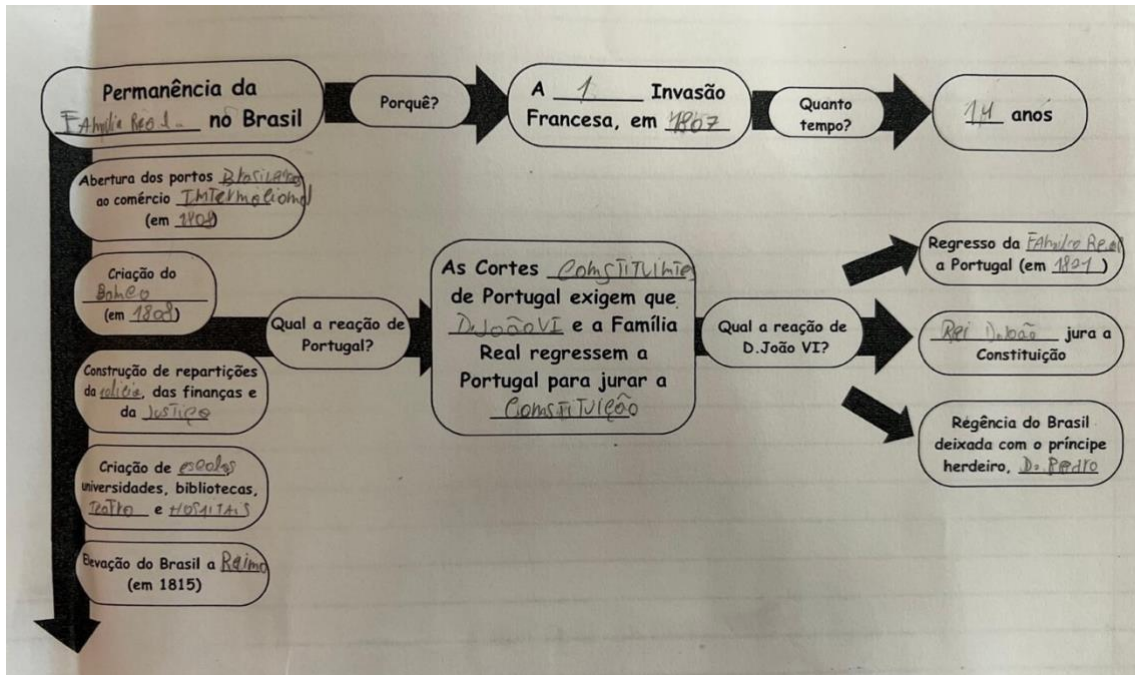 Permanência da
Família Real no Brasil
Porquê?
A 1 Invasão
Francesa, em 1807
Quanto
tempo?
14 anos
Abertura dos portos Brasileiros
ao comércio Internacional
(em 1808)
Criação do
Banco
(em 1808)
Construção de repartições
da polícia, das finanças e
da Justiça
Criação de escolas
universidades, bibliotecas,
Teatro e HOSPITAIS
Elevação do Brasil a Reino
(em 1815)
Qual a reação de
Portugal?
As Cortes Constituintes
de Portugal exigem que
D.João VI e a Família
Real regressem a
Portugal para jurar a
Constituição
Qual a reação de
D.João VI?
Regresso da Família Real
a Portugal (em 1821)
Rei D.João jura a
Constituição
Regência do Brasil
deixada com o príncipe
herdeiro, D. Pedro